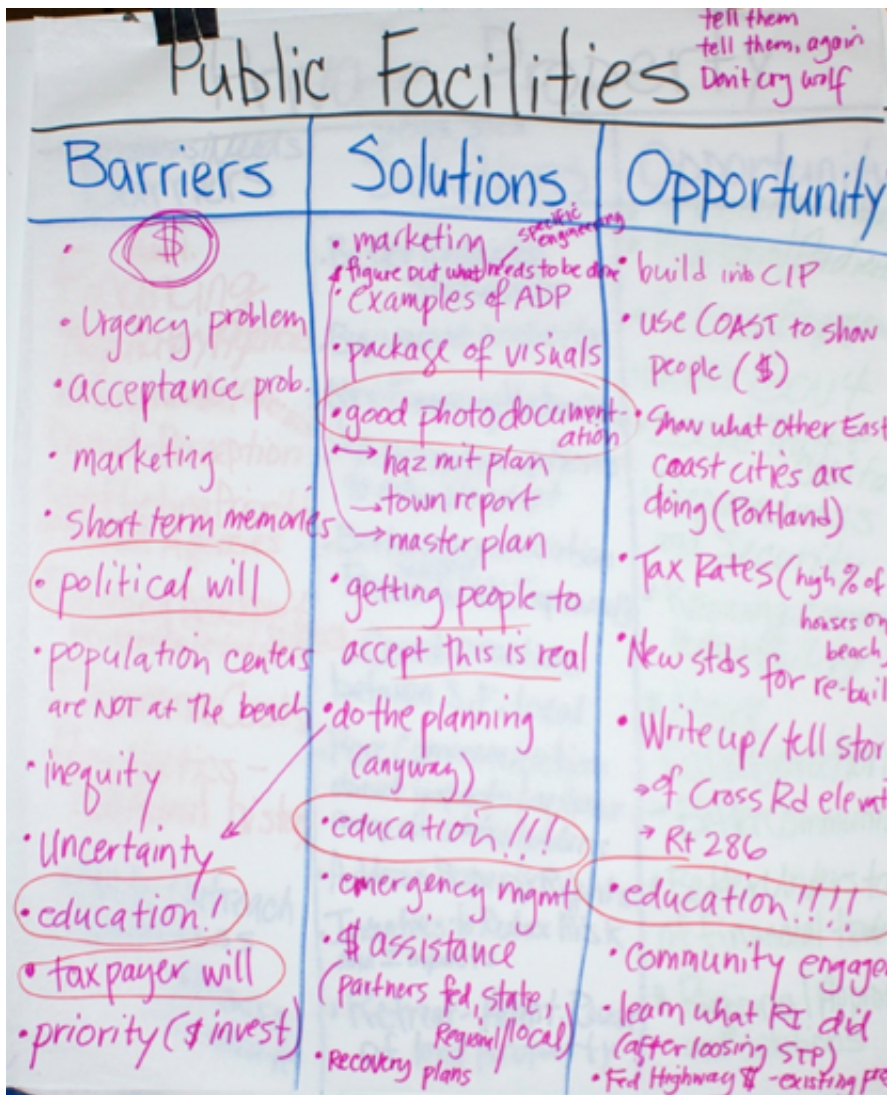 tell them
tell them, again
Don't cry wolf
Public Facilities
Barriers
• $
• Urgency problem
• acceptance prob.
• marketing
• Short term memories
• political will
• population centers
are NOT at The beach
• inequity
• Uncertainty
• education!
• taxpayer will
• priority ($ invest)
Solutions
• marketing
specific
engineering
• figure out what needs to be done
• examples of ADP
• package of visuals
• good photo document-
ation
→ haz mit plan
→ town report
→ master plan
• getting people to
accept this is real
• do the planning
(anyway)
• education!!!
• emergency mgmt
• $ assistance
(partners fed, state,
Regional/local)
• Recovery
plans
Opportunity
• build into CIP
• use COAST to show
people ($)
• Show what other East
coast cities are
doing (Portland)
• Tax Rates (high % of
houses on
beach
• New stds for re-buil
• Write up/tell stor
→ of Cross Rd elevat
→ Rt 286
• education!!!!
• Community engage
• learn what RI did
(after loosing STP)
• Fed Highway $ - existing pr